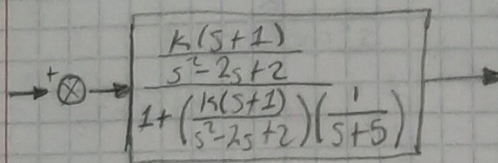 +
K(s+1)
s²-2s+2
1+(K(s+1)/s²-2s+2)(1/s+5)